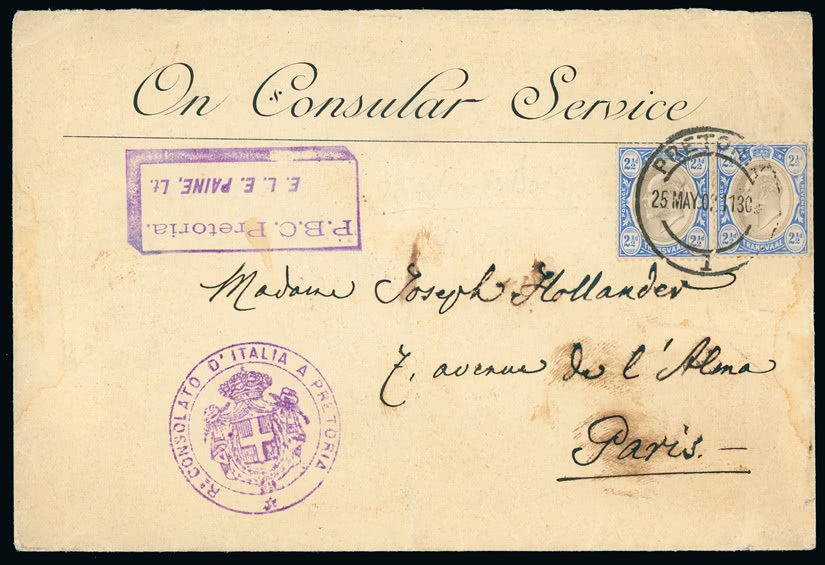 On Consular Service
P.B.C. Pretoria.
E. L. E. PAINE, Lt.
PRETORIA
25 MAY.02 1130
1
2½ 2½
2½ 2½
POSTAGE
TRANSVAAL
2½ 2½
2½ 2½
TRANSVAAL
Madame Joseph Hollander
7, avenue de l'Alma
Paris.—
Rº CONSOLATO D'ITALIA A PRETORIA